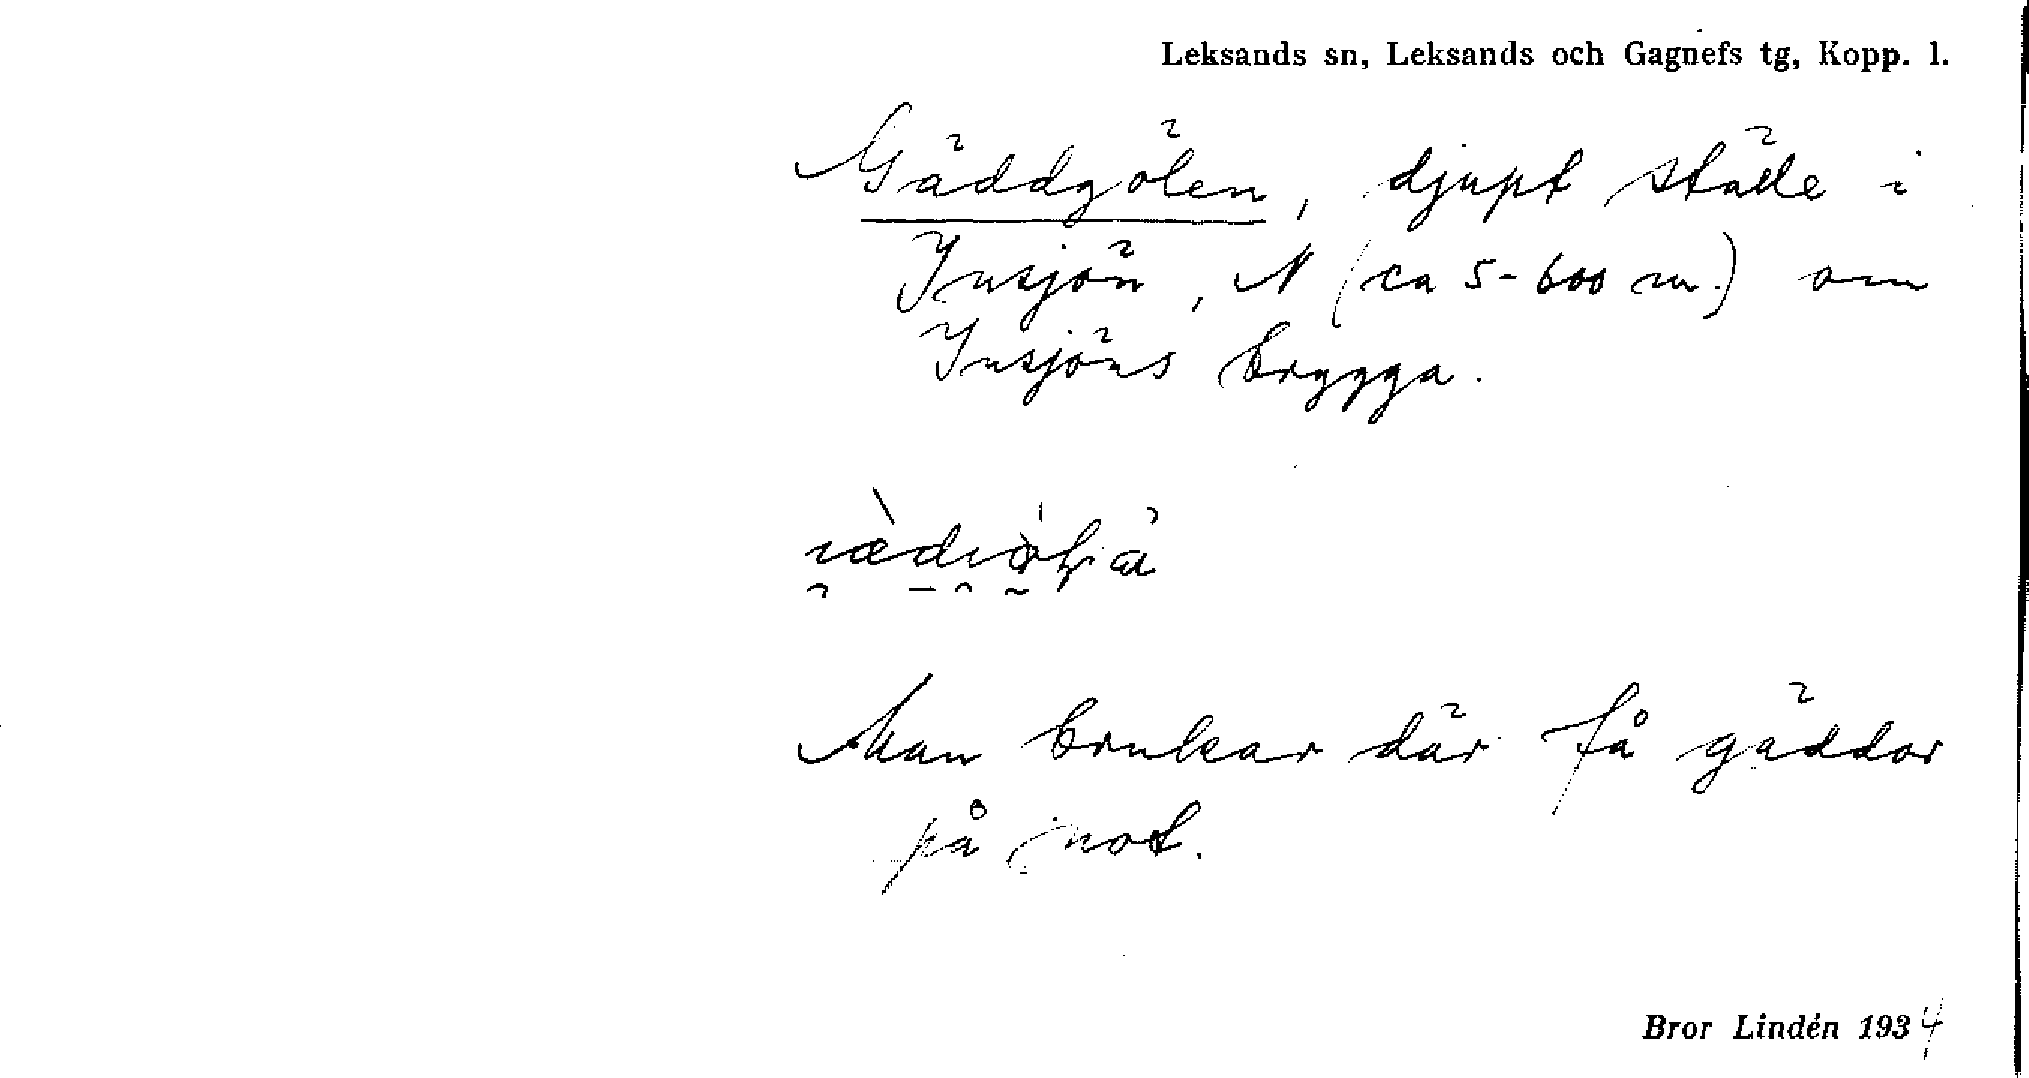 Leksands sn, Leksands och Gagnefs tg, Kopp. l.
Gäddgölen, djupt ställe i
Insjön, N (ca 5-600 m.) om
Insjöns brygga.
Man brukar där få gäddor
på not.
Bror Lindén 1934